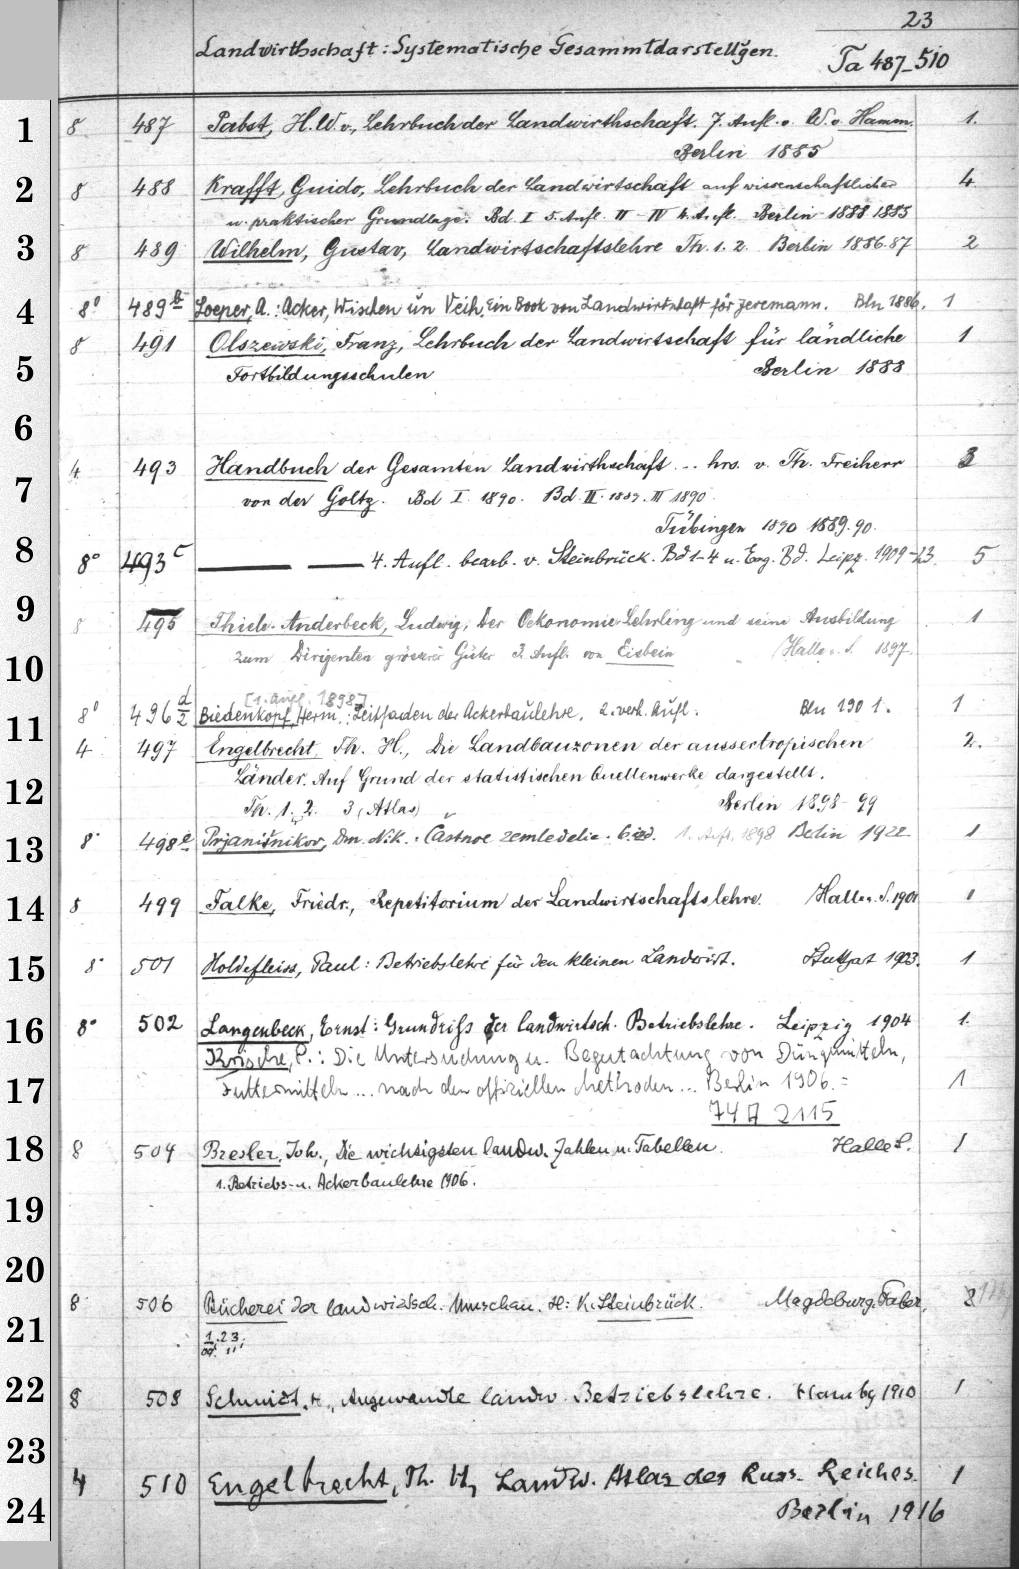 23
Landwirthschaft: Systematische Gesammtdarstellgen.
Ta 487-510
1 8 487 Pabst, H. W. v., Lehrbuch der Landwirthschaft. 7. Aufl. v. W. v. Hamm. 1.
Berlin 1885
2 8 488 Krafft, Guido, Lehrbuch der Landwirtschaft auf wissenschaftlicher 4
u. praktischer Grundlage. Bd. I 5. Aufl. II-IV 4. Aufl. Berlin 1888 1885
3 8 489 Wilhelm, Gustav, Landwirtschaftslehre Th. 1. 2. Berlin 1886.87 2
4 8° 489 b Loeper, A.: Acker, Wischen un Veih, Ein Book von Landwirtschaft för Jeremann. Bln 1886. 1
8 491 Olszewski, Franz, Lehrbuch der Landwirtschaft für ländliche 1
5 Fortbildungsschulen Berlin 1888
6
4 493 Handbuch der Gesamten Landwirthschaft... hrs. v. Th. Freiherr 3
7 von der Goltz. Bd I. 1890. Bd. II. 1889. III 1890.
Tübingen 1890 1889.90.
8 8° 493 c 4. Aufl. bearb. v. Steinbrück. Bd 1-4 u. Erg. Bd. Leipz. 1909-13. 5
9 8 495 Thiele-Anderbeck, Ludwig, Der Oekonomie Lehrling und seine Ausbildung 1
10 zum Dirigenten grösserer Güter 3. Aufl. von Eisbein Halle a. S. 1897.
[1. Aufl. 1898]
11 8° 496 d/2 Biedenkopf, Herm.: Leitfaden der Ackerbaulehre. 2. verb. Aufl. Bln 1901. 1
4 497 Engelbrecht, Th. H., Die Landbauzonen der aussertropischen 2.
12 Länder. Auf Grund der statistischen Quellenwerke dargestellt.
Th. 1. 2. 3 (Atlas) Berlin 1898-99
13 8° 498 e Prjanišnikov, Dm. Nik. Častnoe zemledelie. 6 izd. 1. Aufl. 1898 Berlin 1922 1
14 8 499 Falke, Friedr., Repetitorium der Landwirtschaftslehre. Halle a. S. 1901 1
15 8° 501 Holdefleiss, Paul: Betriebslehre für den kleinen Landwirt. Stuttgart 1903. 1
16 8° 502 Langenbeck, Ernst: Grundriß der landwirtsch. Betriebslehre. Leipzig 1904 1.
Krische, P.: Die Untersuchung u. Begutachtung von Düngmitteln,
17 Futtermitteln... nach den offiziellen Methoden... Berlin 1906. = 1
74 A 2115
18 8 504 Bresler, Joh., Die wichtigsten landw. Zahlen u. Tabellen. Halle S. 1
1. Betriebs- u. Ackerbaulehre 1906.
19
20
8 506 Bücherei der landwirtsch. Umschau. H: K. Steinbrück. Magdeburg: Faber.
21 1. 2 3.
22 8 508 Schmidt, H., Angewandte landw. Betriebslehre. Hambg 1910 1
23
4 510 Engelbrecht, Th. H., Landw. Atlas des Russ. Reiches. 1
24 Berlin 1916